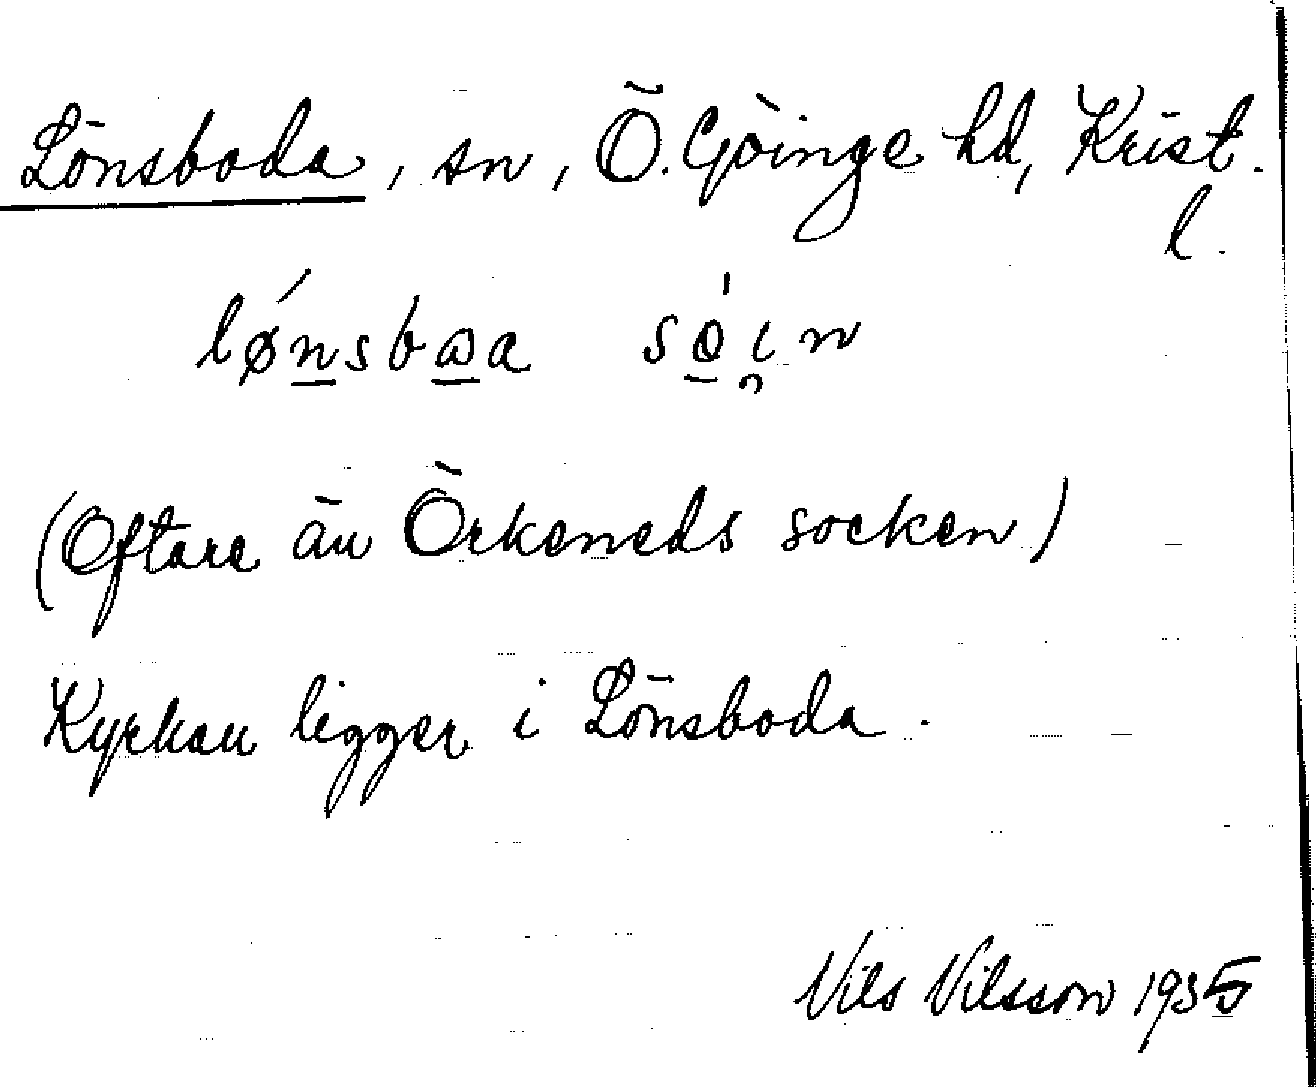 Lönsboda, sn, Ö. Göinge hd, Krist.
l.
lǿnsbɷa sǫ́i̯n
(Oftare än Örkeneds socken)
Kyrkan ligger i Lönsboda.
Nils Nilsson 1935